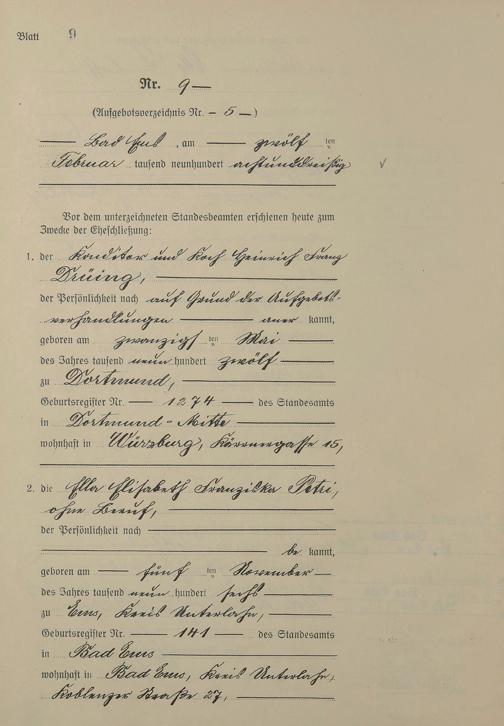 Blatt 9
Nr. 9 —
(Aufgebotsverzeichnis Nr. — 5 —)
Bad Ems, am — zwölf ten
Februar tausend neunhundert achtunddreißig
Vor dem unterzeichneten Standesbeamten erschienen heute zum
Zwecke der Eheschließung:
1. der Konditor und Koch Heinrich Franz
Drüing, —
der Persönlichkeit nach auf Grund der Aufgebots-
verhandlungen — aner kannt,
geboren am zwanzigs ten Mai —
des Jahres tausend neun hundert zwölf —
zu Dortmund, —
Geburtsregister Nr. — 1274 — des Standesamts
in Dortmund-Mitte —
wohnhaft in Würzburg, Kärrnergasse 15,
2. die Ella Elisabeth Franziska Petri,
ohne Beruf, —
der Persönlichkeit nach —
— be kannt,
geboren am — fünf ten November —
des Jahres tausend neun hundert sechs —
zu Ems, Kreis Unterlahn, —
Geburtsregister Nr. — 141 — des Standesamts
in Bad Ems —
wohnhaft in Bad Ems, Kreis Unterlahn,
Koblenzer Straße 27, —